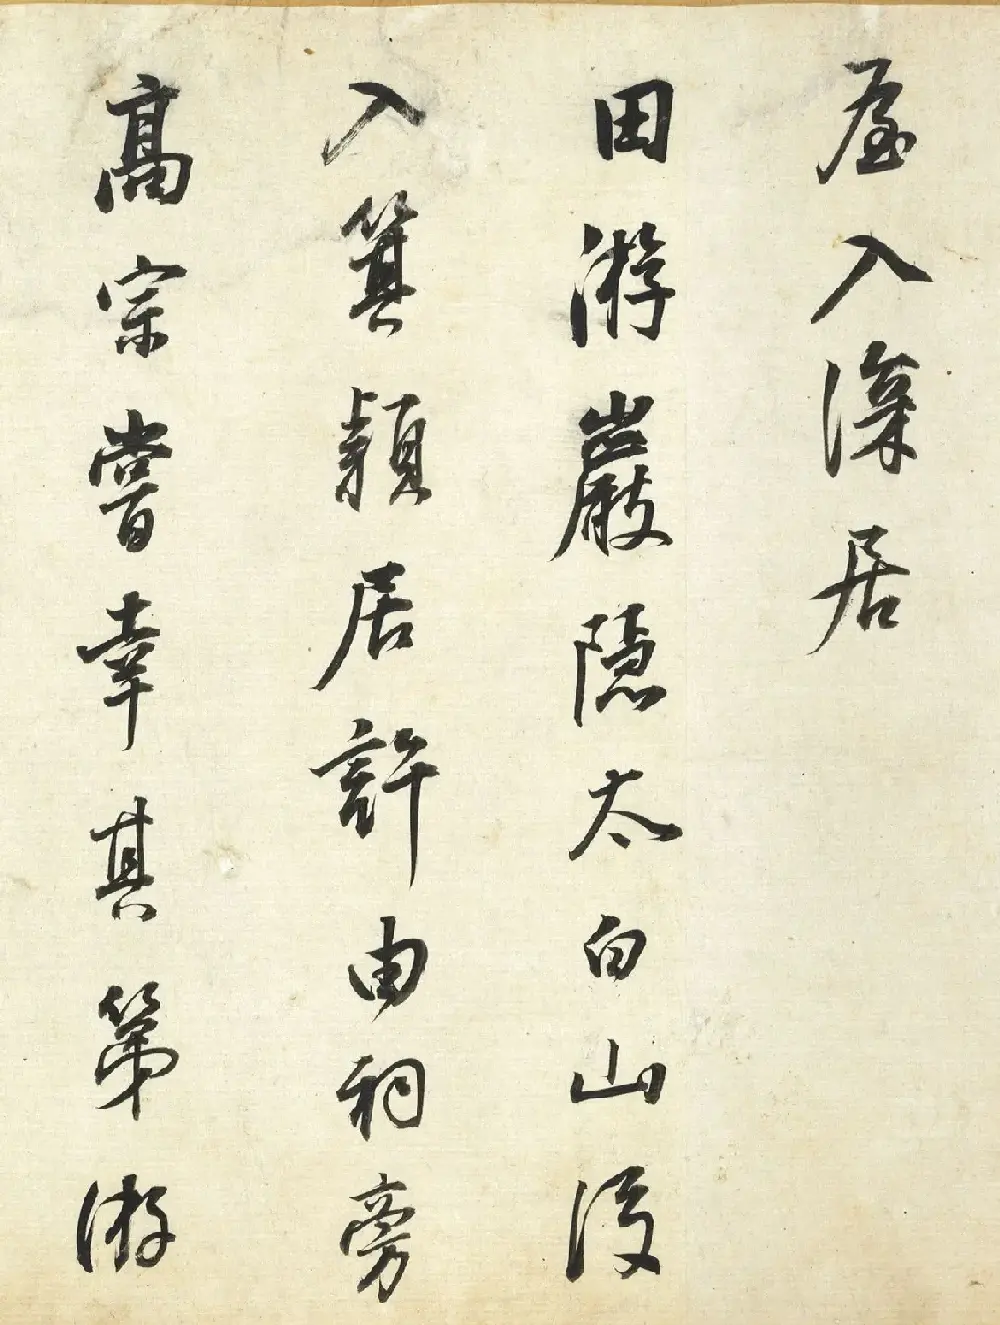 屋入深居
田游巖隱太白山後
入箕潁居許由祠旁
高宗嘗幸其第游